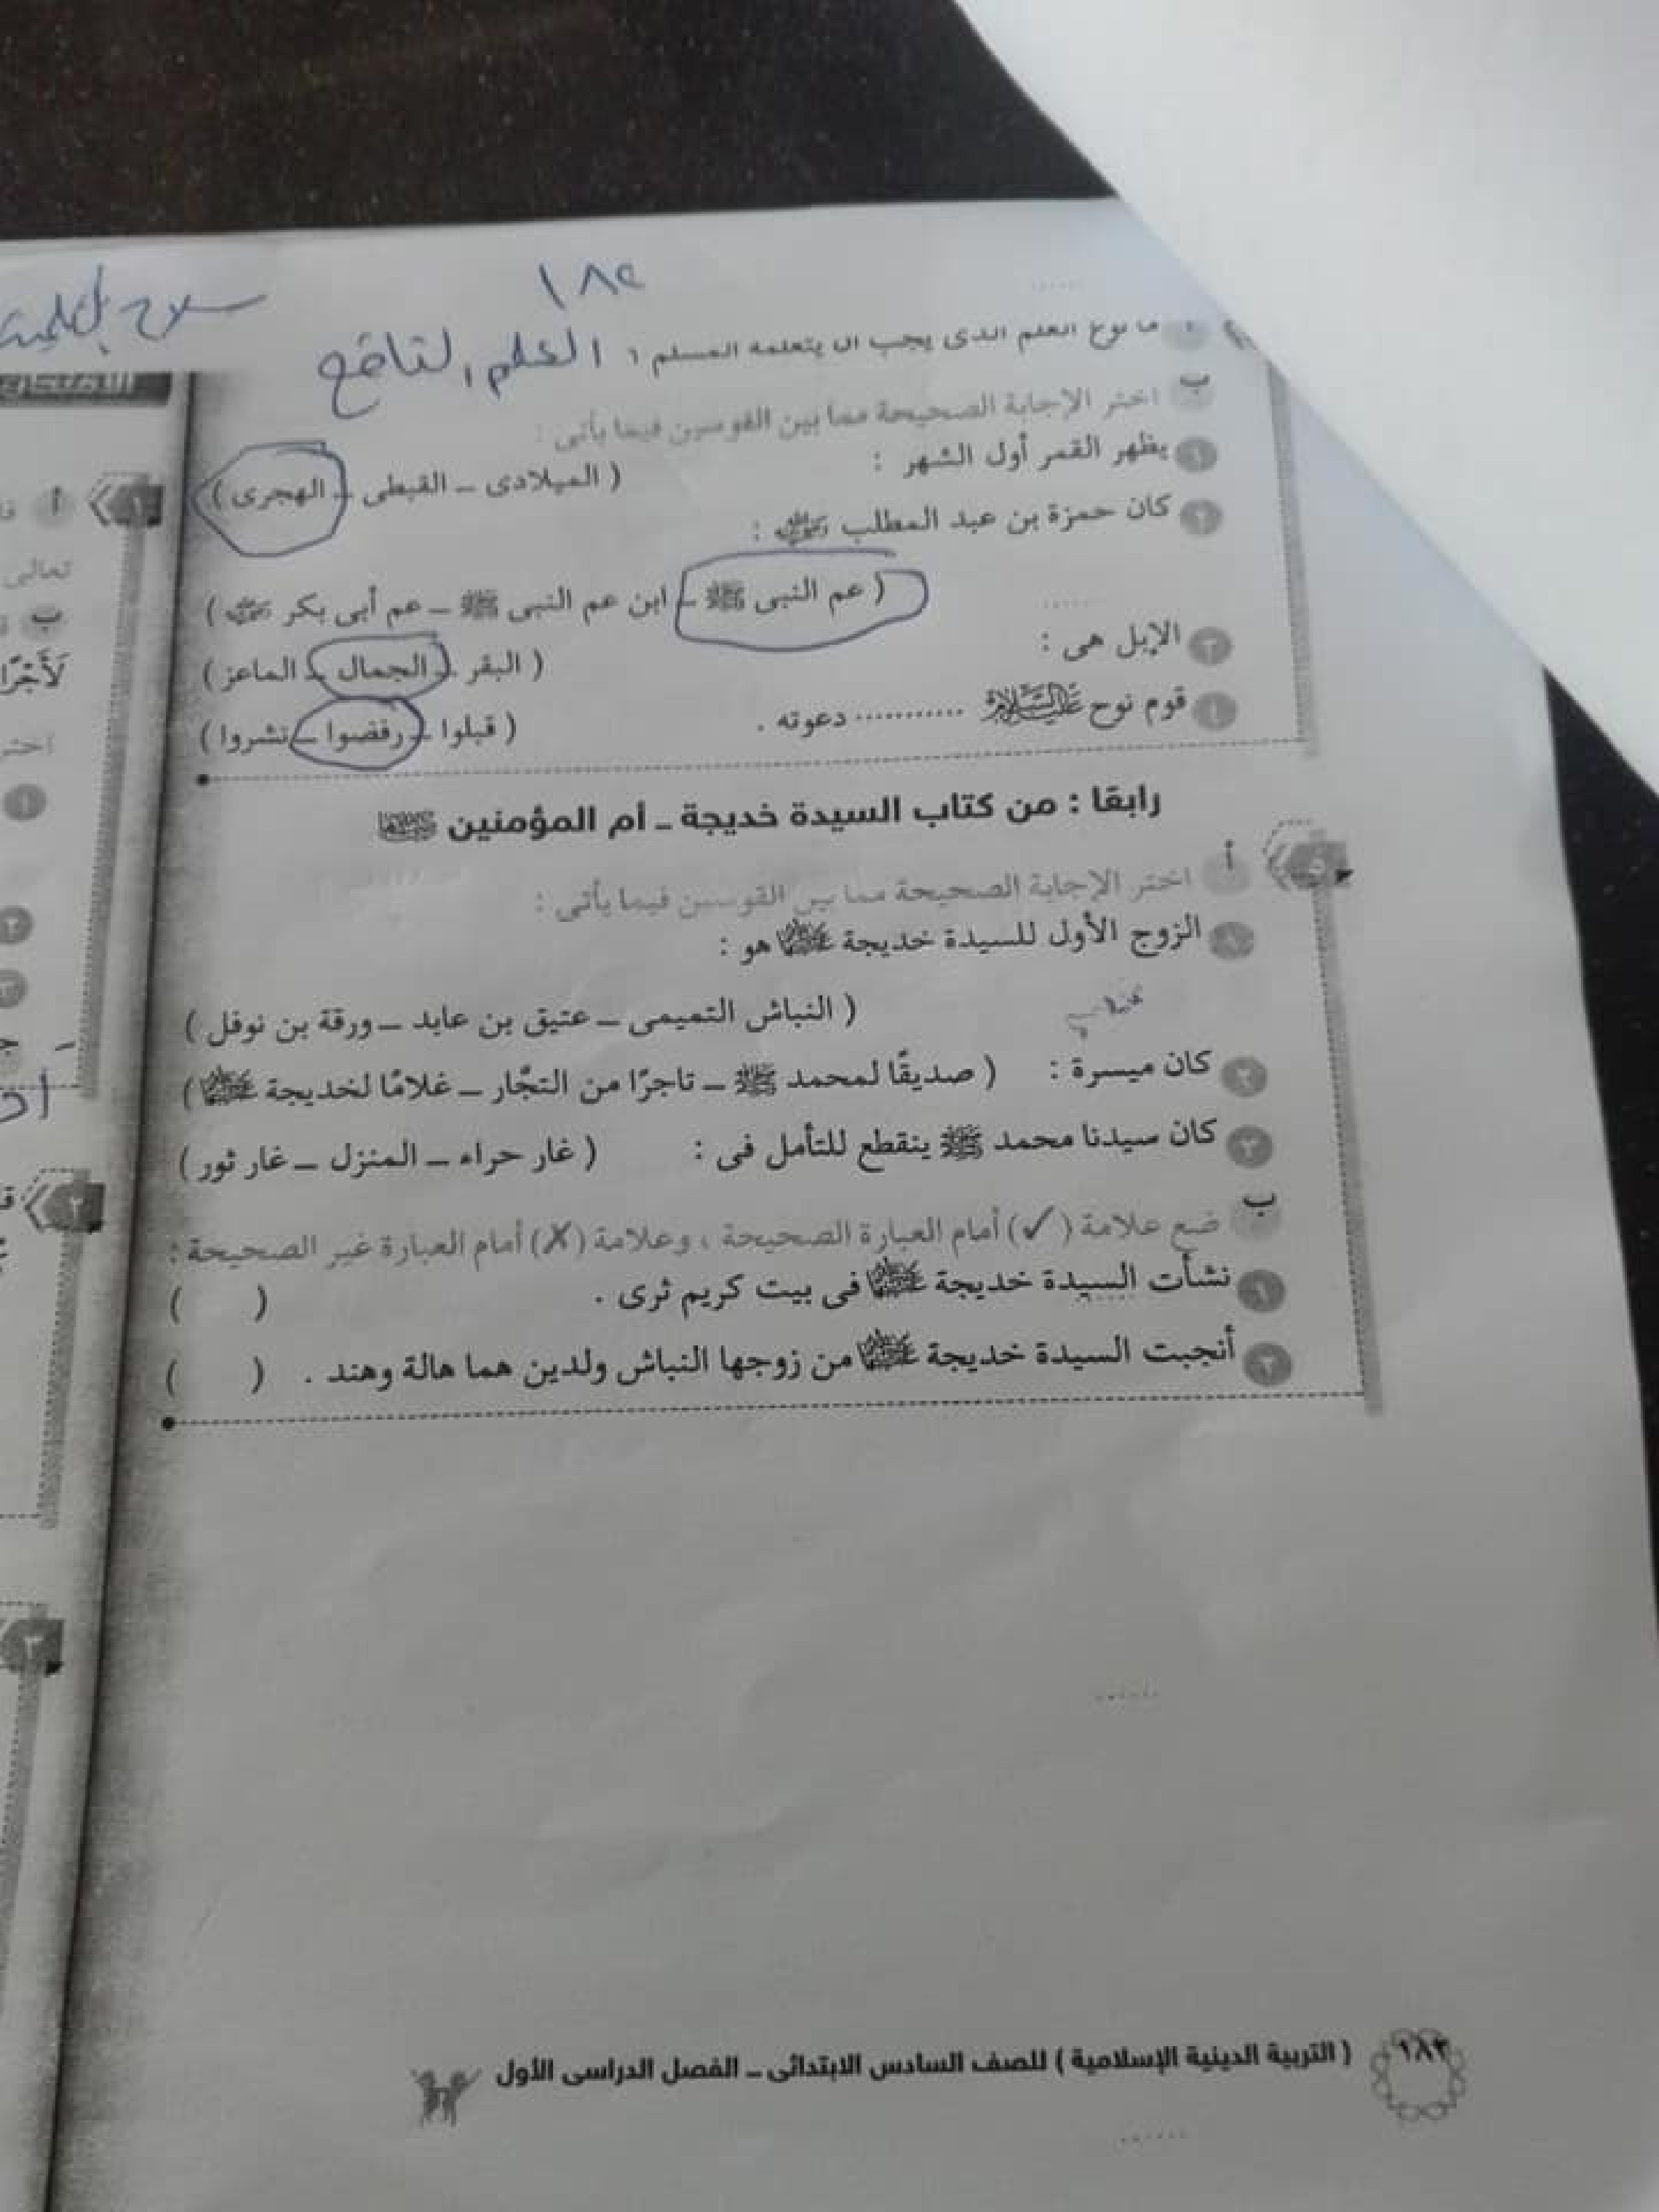 ١٨٢
سلاح التلميذ
ما نوع العلم الذى يجب أن يتعلمه المسلم ؟ العلم النافع
ب اختر الإجابة الصحيحة مما بين القوسين فيما يأتى :
١ يظهر القمر أول الشهر : ( الميلادى – القبطى – الهجرى )
٢ كان حمزة بن عبد المطلب رضي الله عنه :
( عم النبى ﷺ – ابن عم النبى ﷺ – عم أبى بكر رضي الله عنه )
٣ الإبل هى : ( البقر – الجمال – الماعز )
٤ قوم نوح عليه السلام ............ دعوته . ( قبلوا – رفضوا – نشروا )
رابعًا : من كتاب السيدة خديجة – أم المؤمنين رضي الله عنها
٥ أ اختر الإجابة الصحيحة مما بين القوسين فيما يأتى :
١ الزوج الأول للسيدة خديجة رضي الله عنها هو :
( النباش التميمى – عتيق بن عابد – ورقة بن نوفل )
٢ كان ميسرة : ( صديقًا لمحمد ﷺ – تاجرًا من التجّار – غلامًا لخديجة رضي الله عنها )
٣ كان سيدنا محمد ﷺ ينقطع للتأمل فى : ( غار حراء – المنزل – غار ثور )
ب ضع علامة (✓) أمام العبارة الصحيحة ، وعلامة (✗) أمام العبارة غير الصحيحة :
١ نشأت السيدة خديجة رضي الله عنها فى بيت كريم ثرى . ( )
٢ أنجبت السيدة خديجة رضي الله عنها من زوجها النباش ولدين هما هالة وهند . ( )
١٨٣ ( التربية الدينية الإسلامية ) للصف السادس الابتدائى – الفصل الدراسى الأول
١ أ
تعالى
ب
لَأَجْرًا
اختر
١
٢
٣
٢
٣